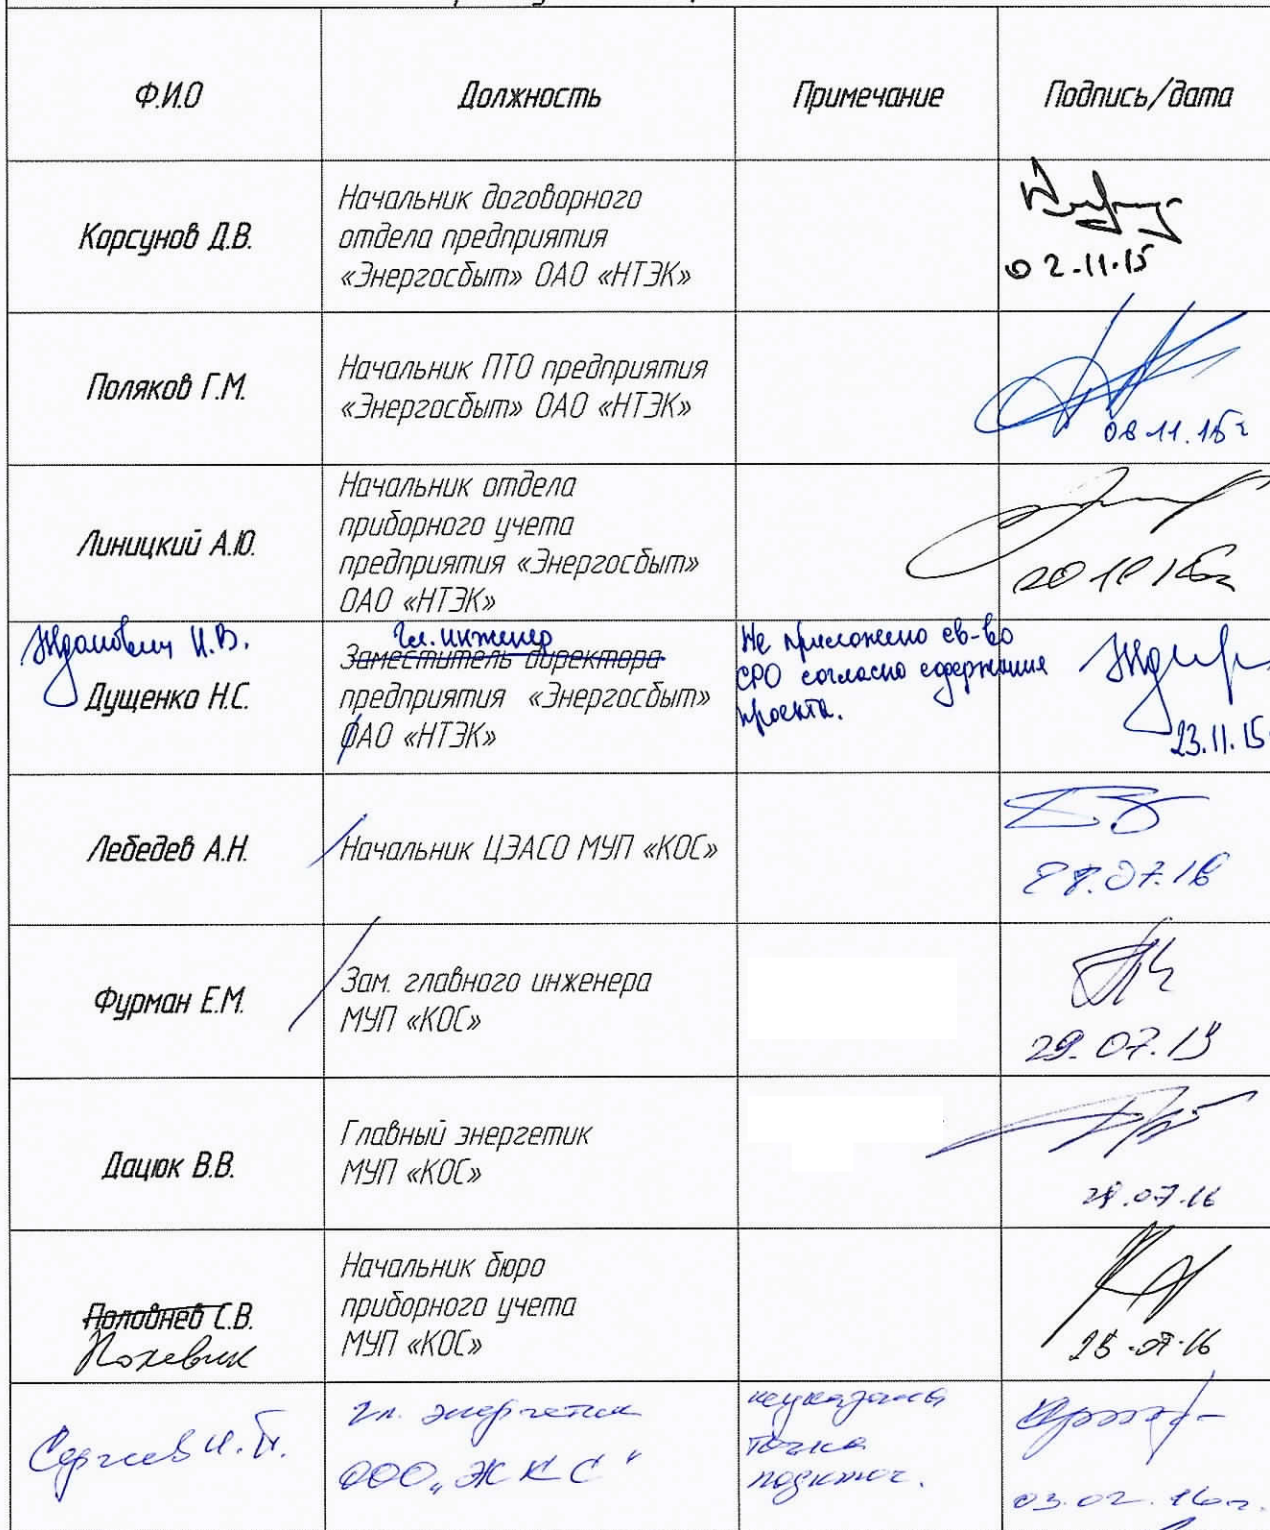 Ф.И.О
Должность
Примечание
Подпись/дата
Корсунов Д.В.
Начальник договорного
отдела предприятия
«Энергосбыт» ОАО «НТЭК»
02.11.15
Поляков Г.М.
Начальник ПТО предприятия
«Энергосбыт» ОАО «НТЭК»
08.11.15г
Линицкий А.Ю.
Начальник отдела
приборного учета
предприятия «Энергосбыт»
ОАО «НТЭК»
Жданович И.В.
Дущенко Н.С.
Гл. инженер
Заместитель директора
предприятия «Энергосбыт»
ОАО «НТЭК»
Не приложено св-во
СРО согласно содержания
проекта.
23.11.15
Лебедев А.Н.
Начальник ЦЭАСО МУП «КОС»
Фурман Е.М.
Зам. главного инженера
МУП «КОС»
Дацюк В.В.
Главный энергетик
МУП «КОС»
Половнев С.В.
Начальник бюро
приборного учета
МУП «КОС»
гл. энергетик
ООО „ЖКС"
неуказана
точка
подключ.
03.02.16г.